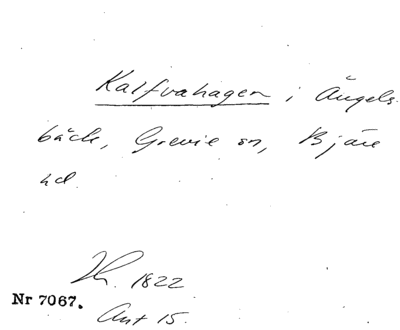 Kalfvahagen i Ängels-
bäck, Grevie sn, Bjäre
hd.
Lh. 1822
Nr 7067.
Ant 15.